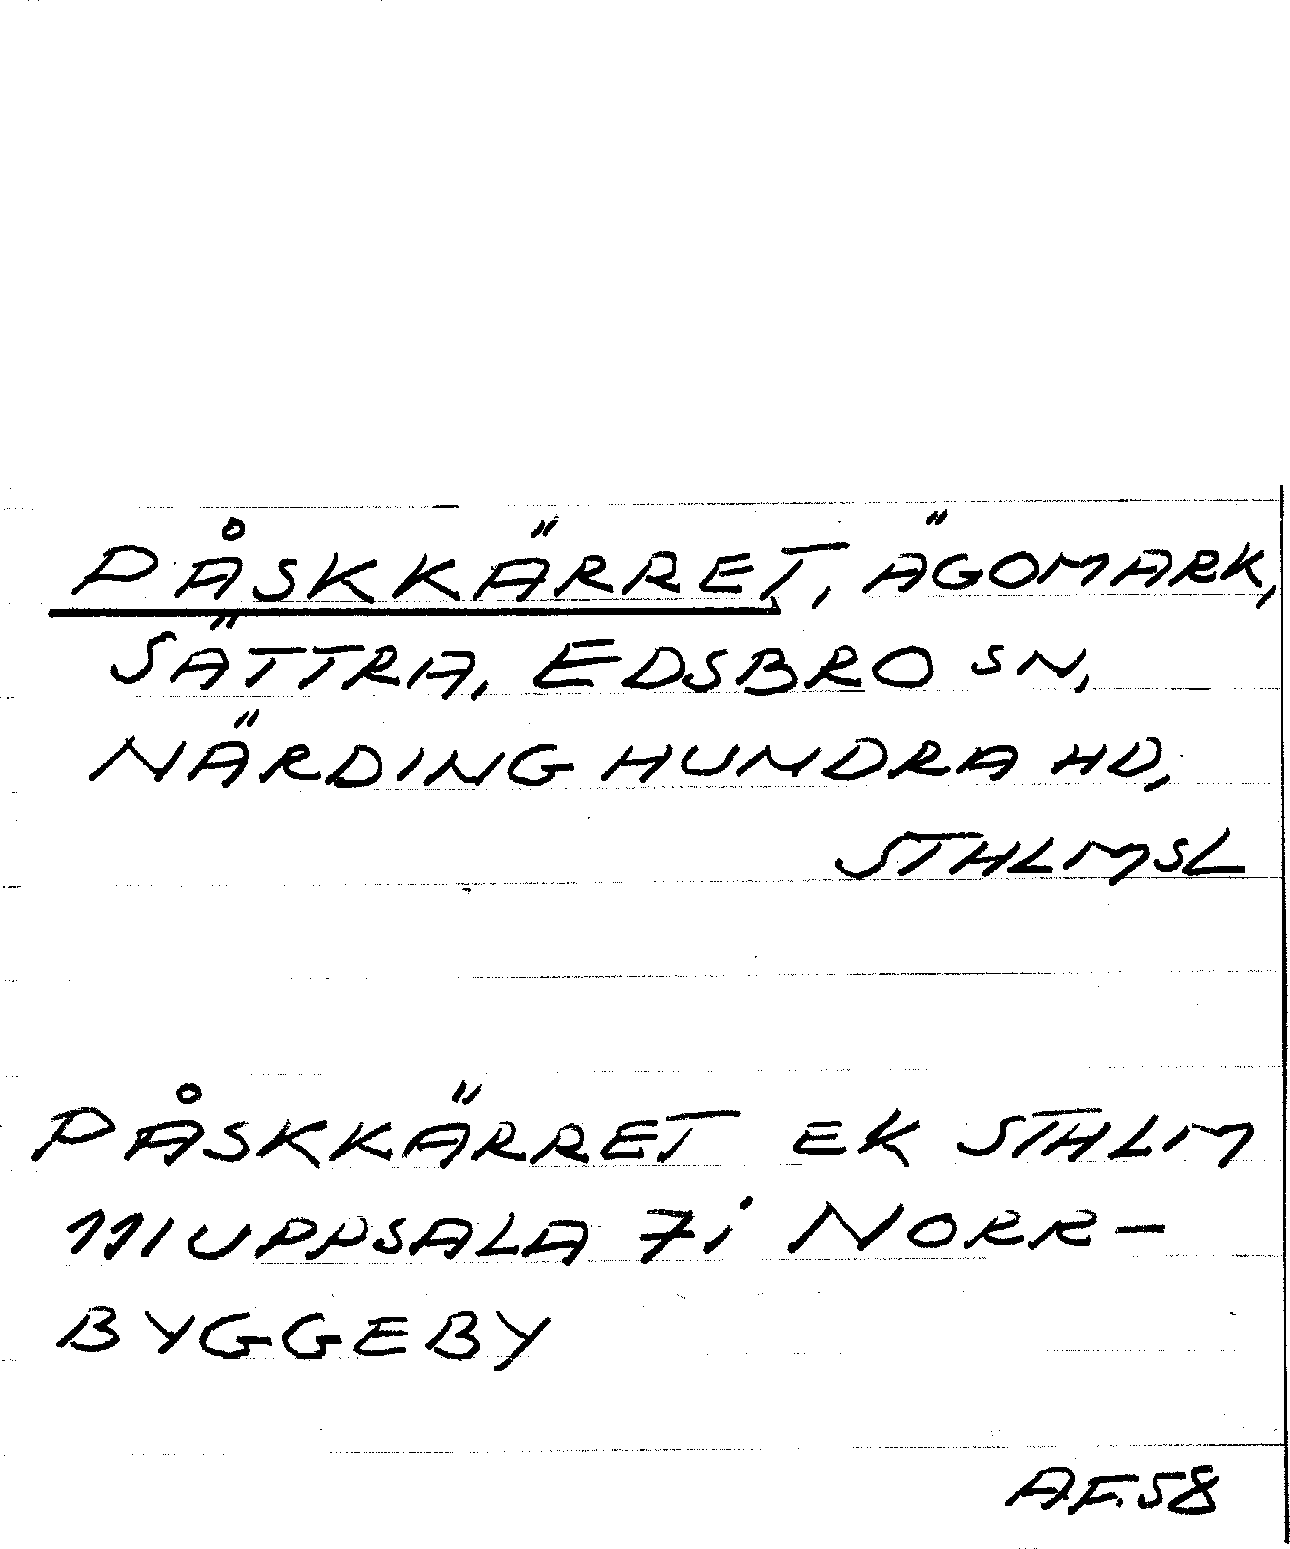 PÅSKKÄRRET, ÄGOMARK,
SÄTTRA, EDSBRO SN,
NÄRDINGHUNDRA HD,
STHLMSL
PÅSKKÄRRET EK STHLM
111 UPPSALA 7i NORR-
BYGGEBY
A.F.58